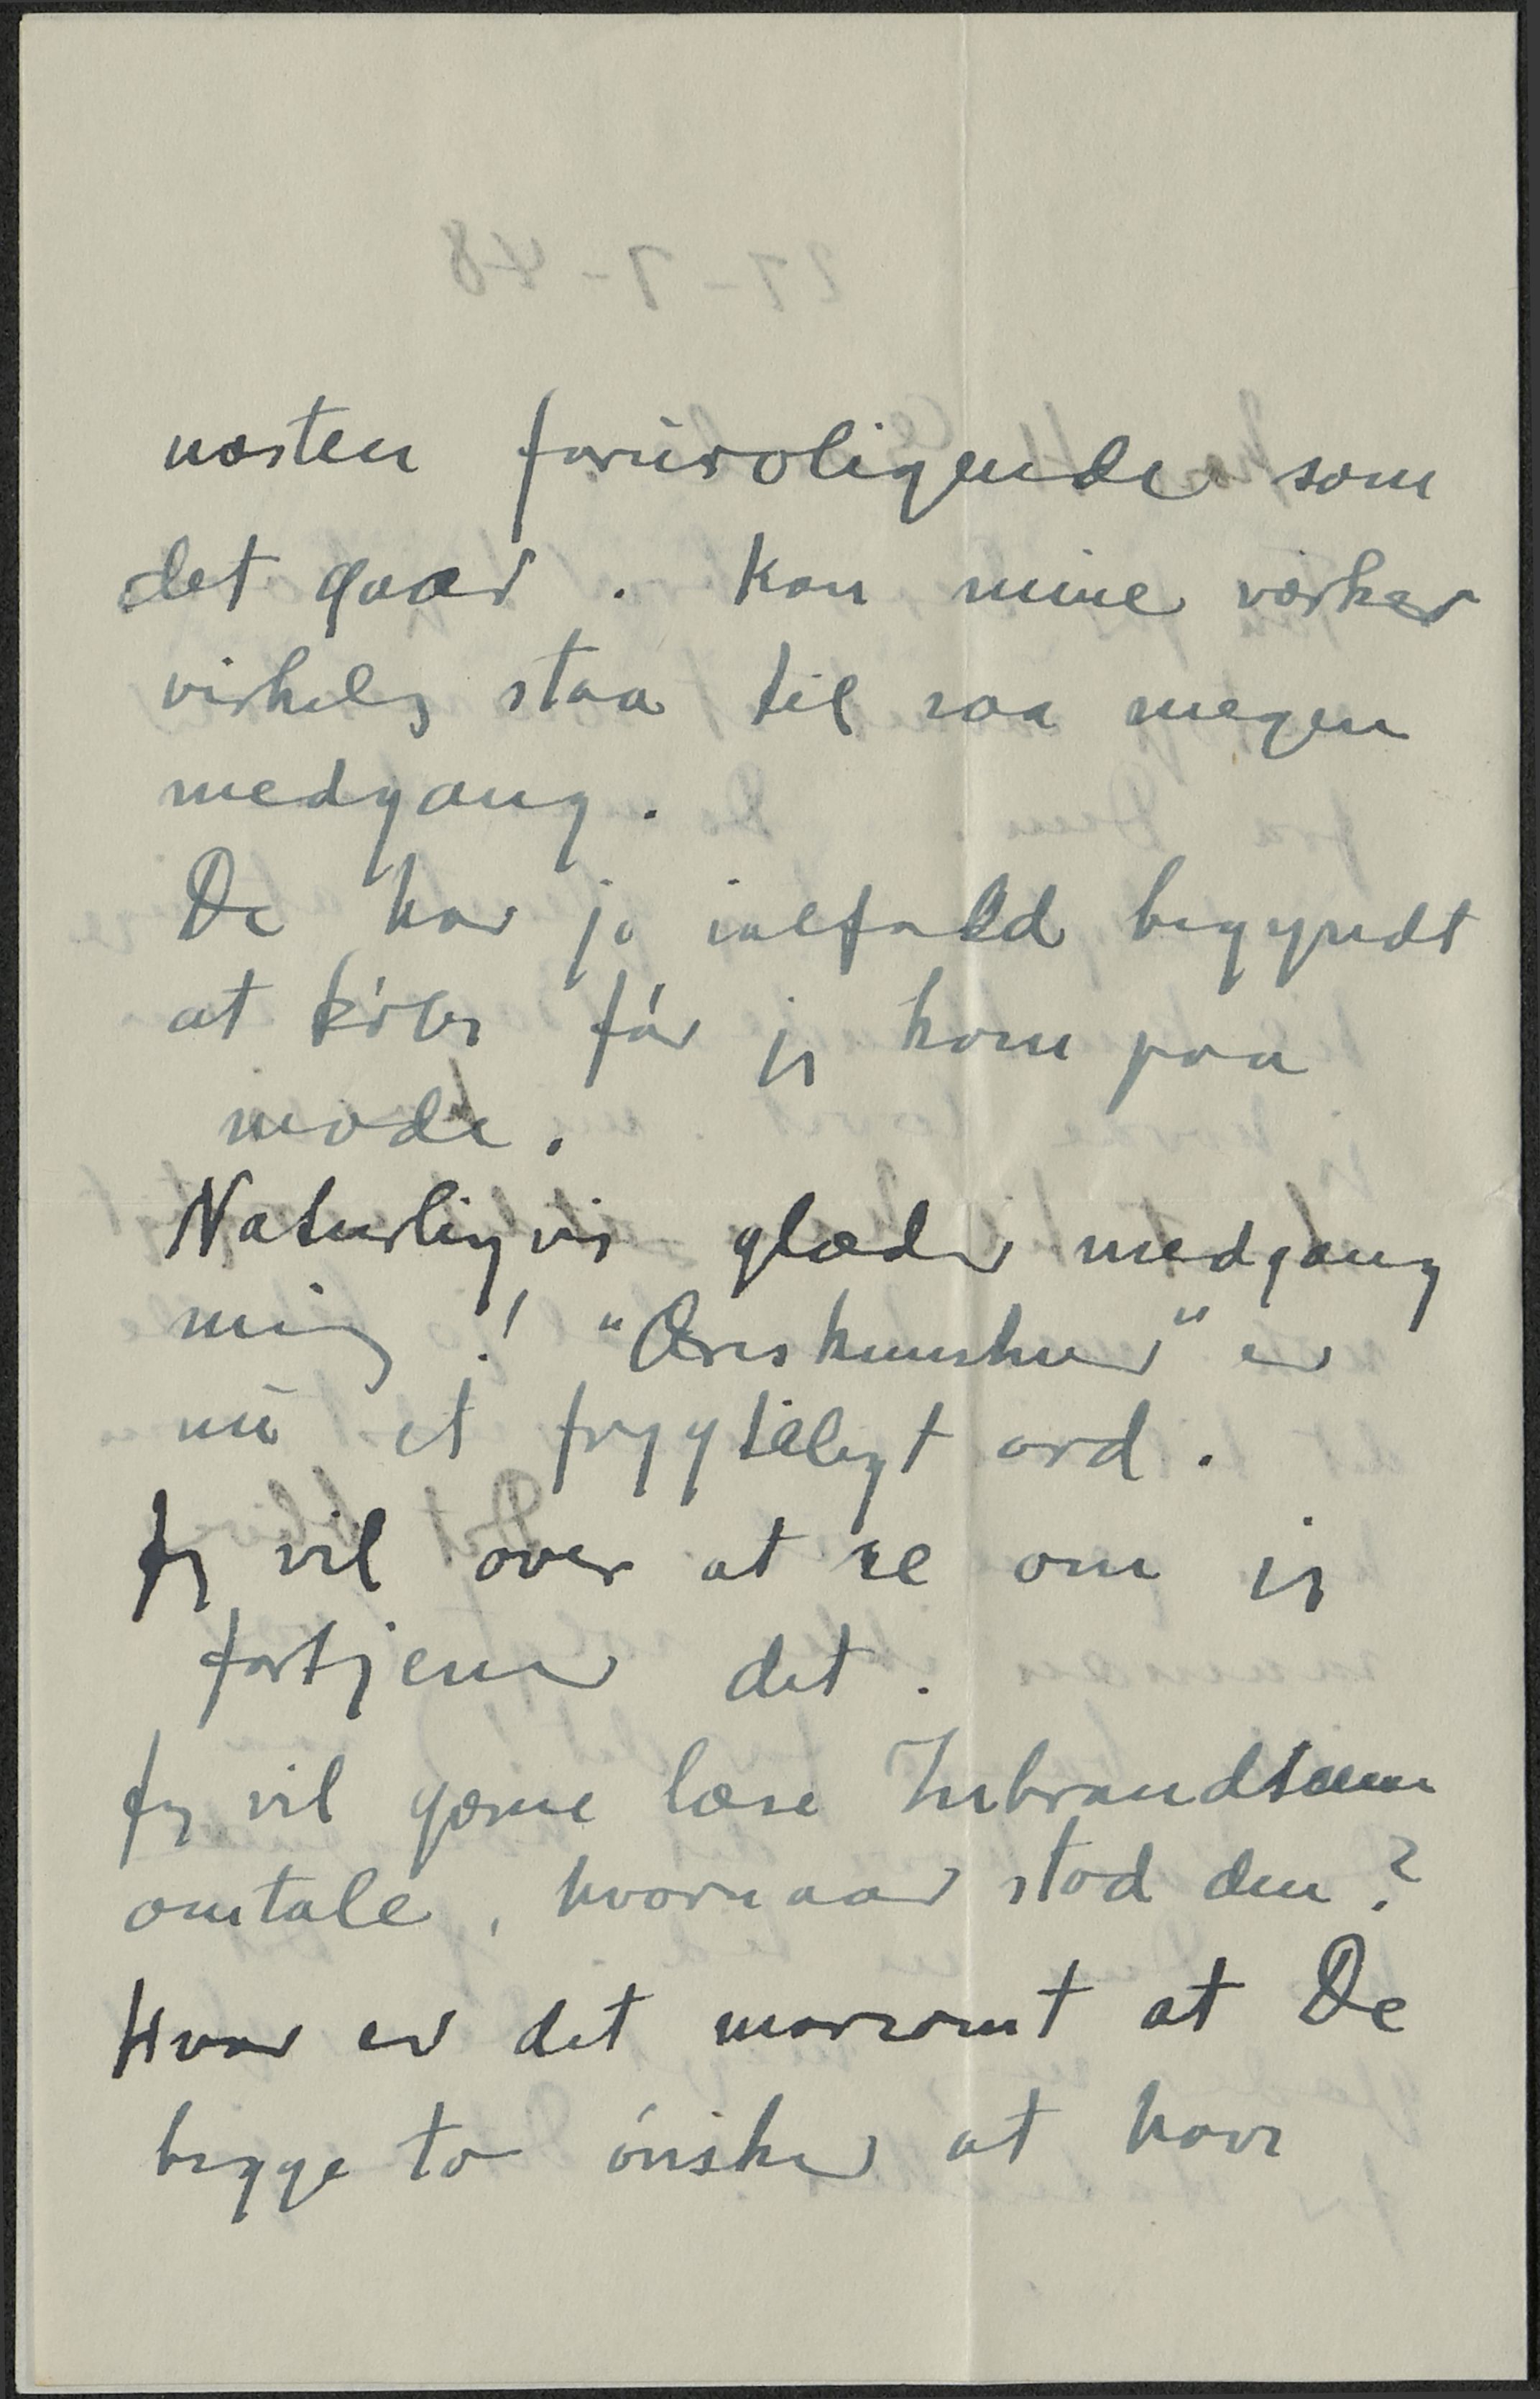 næsten foruroligende som
det gaar. Kan mine værker
virkelig staa til saa megen
medgang.
De har jo ialfald begyndt
at købe før jeg kom paa
mode.
Naturligvis glæder medgang
mig! "Æreskunstner" er
nu et frygteligt ord.
Jeg vil over at se om jeg
fortjener det.
Jeg vil gærne læse
omtale, hvornaar stod den?
Hvor er det morsomt at De
begge to ønsker at have
27-7-48